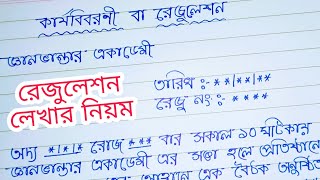 কার্যবিবরণী বা রেজুলেশন
জ্ঞানভান্ডার একাডেমী
রেজুলেশন
লেখার নিয়ম
তারিখ :- **|**|**
রেজু নং :- ****
অদ্য *|*|* রোজ *** বার সকাল ১০ ঘটিকায়
জ্ঞানভান্ডার একাডেমী এর সভা হলে প্রতিষ্ঠানে
এক বৈঠক অনুষ্ঠিত